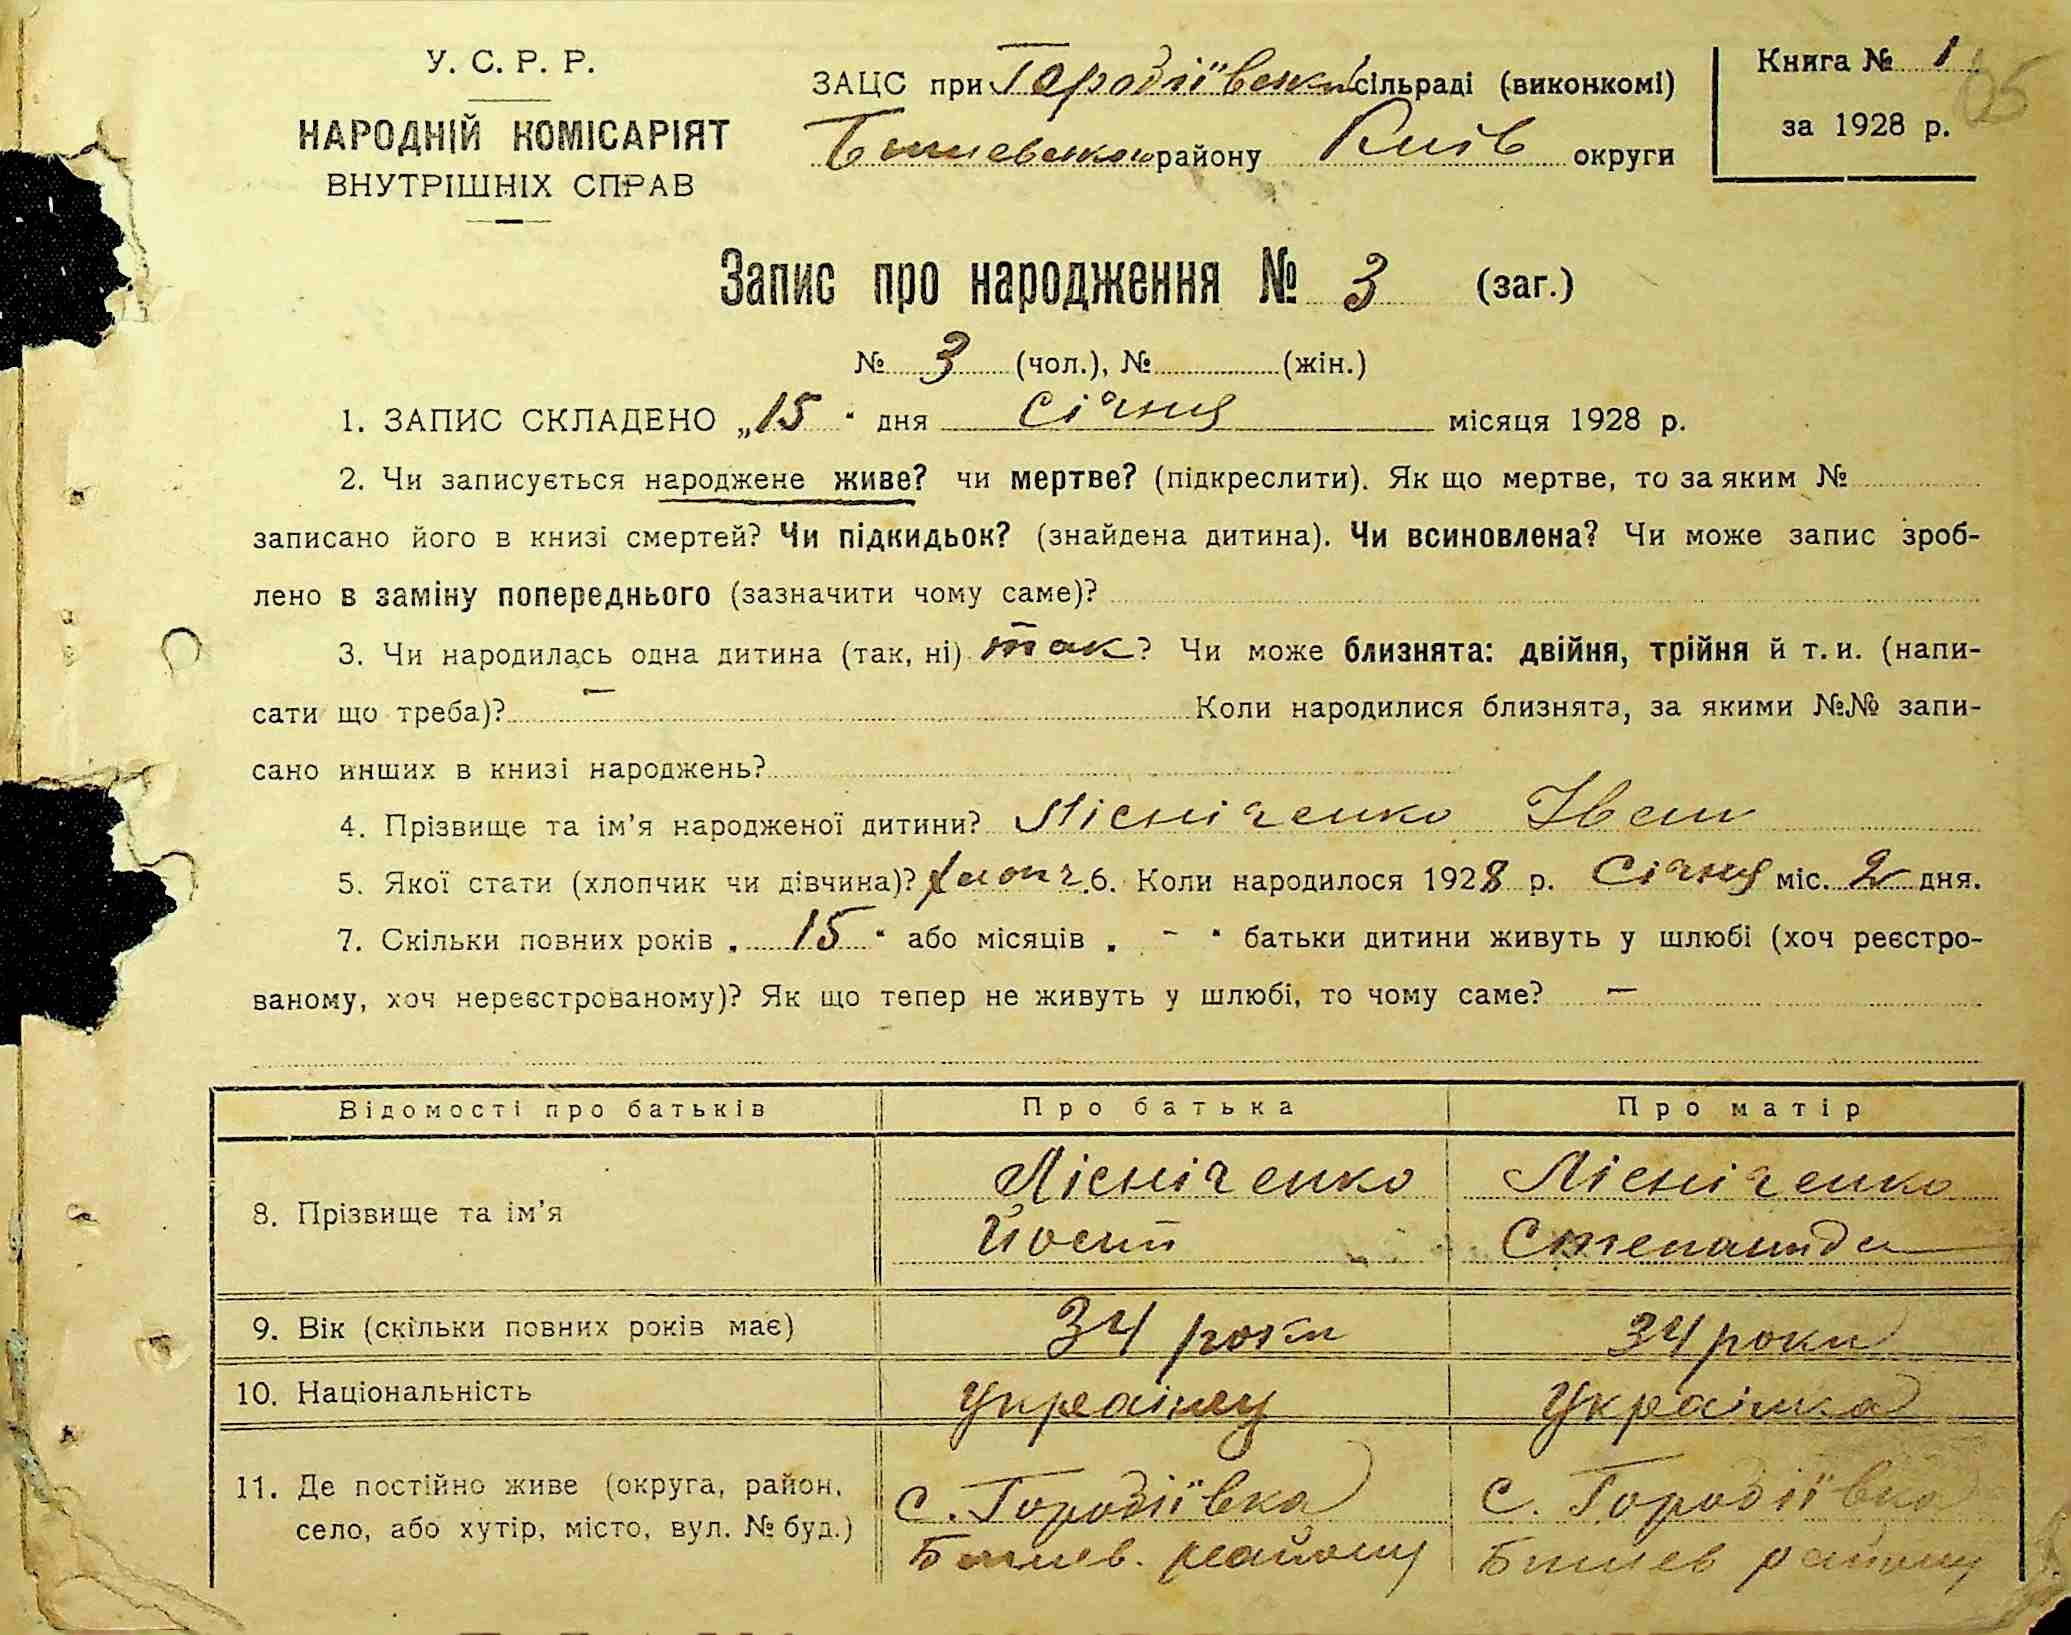 У. С. Р. Р.
НАРОДНІЙ КОМІСАРІЯТ
ВНУТРІШНІХ СПРАВ
ЗАЦС при Городіївській сільраді (виконкомі)
Бишевського району Київ округи
Книга № 1
за 1928 р.
Запис про народження № 3 (заг.)
№ 3 (чол.), № (жін.)
1. ЗАПИС СКЛАДЕНО „15" дня Січня місяця 1928 р.
2. Чи записується народжене живе? чи мертве? (підкреслити). Як що мертве, то за яким №
записано його в книзі смертей? Чи підкидьок? (знайдена дитина). Чи всиновлена? Чи може запис зроб-
лено в заміну попереднього (зазначити чому саме)?
3. Чи народилась одна дитина (так, ні) так? Чи може близнята: двійня, трійня й т. и. (напи-
сати що треба)? — Коли народилися близнята, за якими №№ запи-
сано инших в книзі народжень?
4. Прізвище та ім'я народженої дитини? Лісніченко Іван
5. Якої стати (хлопчик чи дівчина)? хлопч. 6. Коли народилося 1928 р. Січня міс. 2 дня.
7. Скільки повних років „ 15 " або місяців „ - " батьки дитини живуть у шлюбі (хоч реєстро-
ваному, хоч нереєстрованому)? Як що тепер не живуть у шлюбі, то чому саме? —
Відомості про батьків Про батька Про матір
8. Прізвище та ім'я Лісніченко Лісніченко
Йосип Степанида
9. Вік (скільки повних років має) 34 роки 34 роки
10. Національність Українец Українка
11. Де постійно живе (округа, район, с. Городіївка с. Городіївка
село, або хутір, місто, вул. № буд.) Бишев. району Бишев району